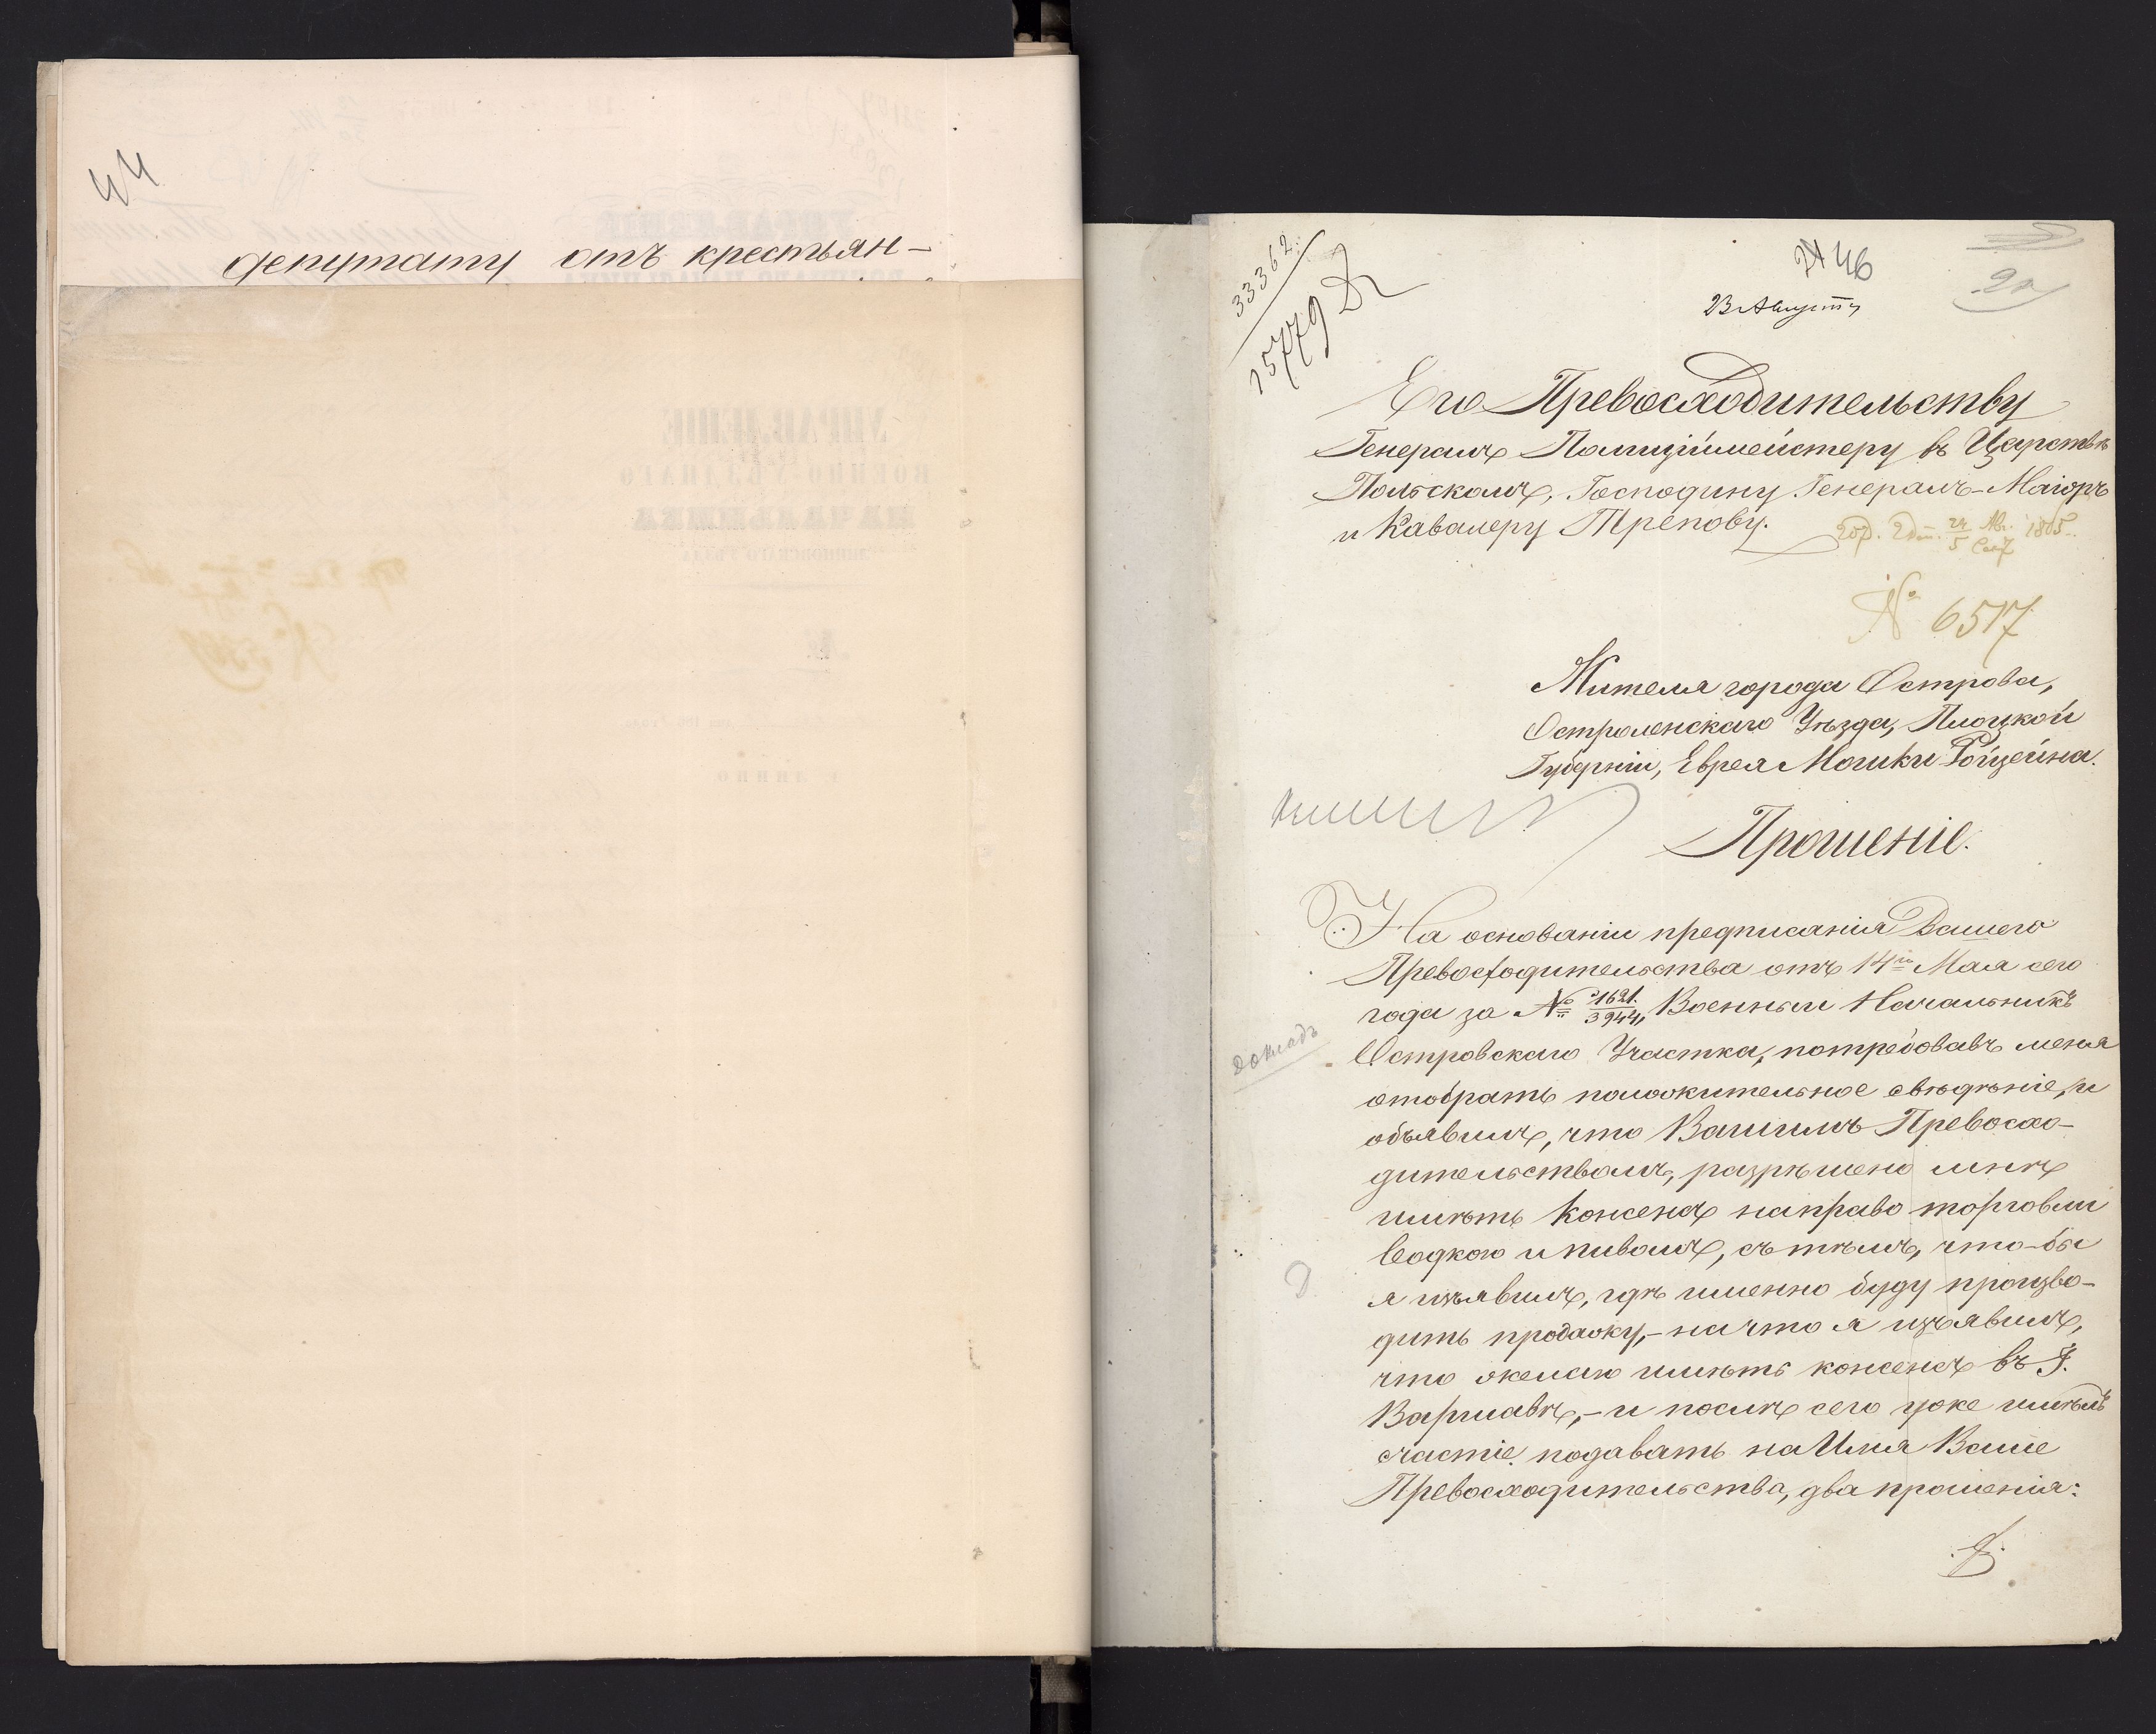 44
депутату отъ крестьян-
33362
15779
46
23 Августа
Его Превосходительству
Генералъ Полиціймейстеру въ Царствѣ
Польскомъ, Господину Генералъ-Маіоръ
и Кавалеру Трепову.
24 Авг. 1865
5 Сен
№ 6517
Жителя города Острова,
Остроленскаго Уѣзда, Плоцкой
Губерніи, Еврея Мошки Ройцейна.
Прошеніе.
На основаніи предписанія Вашего
Превосходительства отъ 14го Мая сего
года за № 1621/3944, Военный Начальникъ
докладъ
Островскаго Участка, потребовавъ меня
отобрать положительное свѣдѣніе, и
объявилъ, что Вашимъ Превосхо-
дительствомъ, разрѣшено мнѣ
имѣть консенсъ на право торговли
водкою и пивомъ, съ тѣмъ, что-бы
я изъявилъ, гдѣ именно буду произво-
дить продажу,- на что я изъявилъ,
что желаю имѣть консенсъ въ Г.
Варшавѣ,- и послѣ сего уже имѣлъ
счастіе подавать на Имя Ваше
Превосходительства, два прошенія: